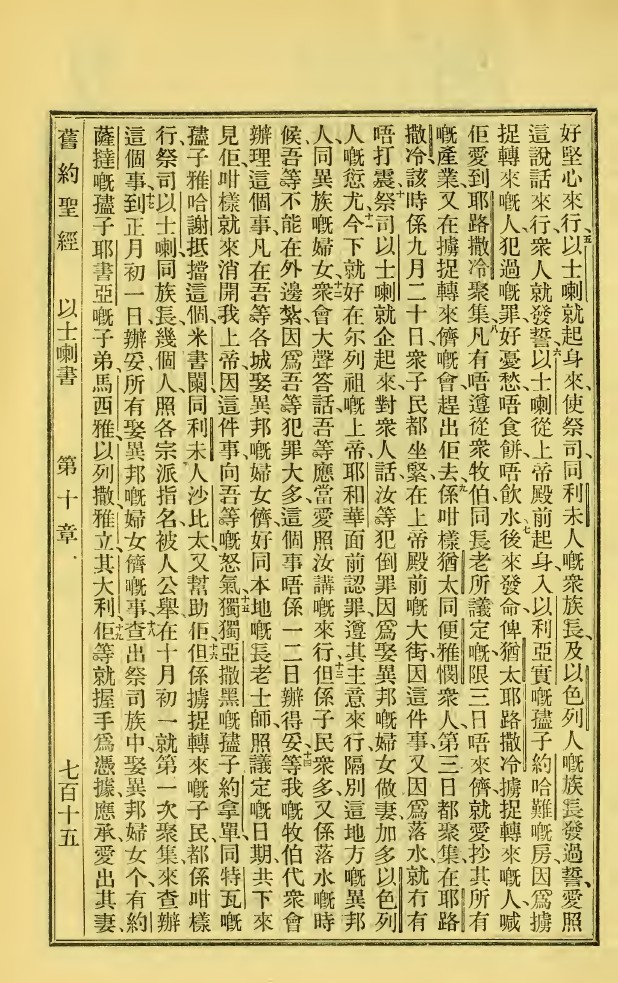 好堅心來行五以士喇就起身來使祭司同利未人嘅衆族長及以色列人嘅族長發過誓愛照
這說話來行衆人就發誓六以士喇從上帝殿前起身入以利亞實嘅孻子約哈難嘅房因爲擄
捉轉來嘅人犯過嘅罪好憂愁唔食餅唔飲水七後來發命俾猶太耶路撒冷擄捉轉來嘅人喊
佢愛到耶路撒冷聚集八凡有唔遵從衆牧伯同長老所議定嘅限三日唔來儕就愛抄其所有
嘅產業又在擄捉轉來儕嘅會趕出佢去九係咁樣猶太同便雅憫衆人第三日都聚集在耶路
撒冷該時係九月二十日衆子民都坐緊在上帝殿前嘅大街因這件事又因爲落水就冇有
唔打震十祭司以士喇就企起來對衆人話汝等犯倒罪因爲娶異邦嘅婦女做妻加多以色列
人嘅愆尤十一今下就好在尔列祖嘅上帝耶和華面前認罪遵其主意來行隔別這地方嘅異邦
人同異族嘅婦女十二衆會大聲答話吾等應當愛照汝講嘅來行十三但係子民衆多又係落水嘅時
候吾等不能在外邊紮因爲吾等犯罪大多這個事唔係一二日辦得妥十四等我嘅牧伯代衆會
辦理這個事凡在吾等各城娶異邦嘅婦女儕好同本地嘅長老士師照議定嘅日期共下來
見佢咁樣就來消開我上帝因這件事向吾等嘅怒氣十五獨獨亞撒黑嘅孻子約拿單同特瓦嘅
孻子雅哈謝抵擋這個米書闌同利未人沙比太又幫助佢十六但係擄捉轉來嘅子民都係咁樣
行祭司以士喇同族長幾個人照各宗派指名被人公舉在十月初一就第一次聚集來查辦
這個事十七到正月初一日辦妥所有娶異邦嘅婦女儕嘅事十八查出祭司族中娶異邦婦女个有約
薩撻嘅孻子耶書亞嘅子弟馬西雅以列撒雅立其大利十九佢等就握手爲憑據應承愛出其妻
舊約聖經 以士喇書 第十章 七百十五